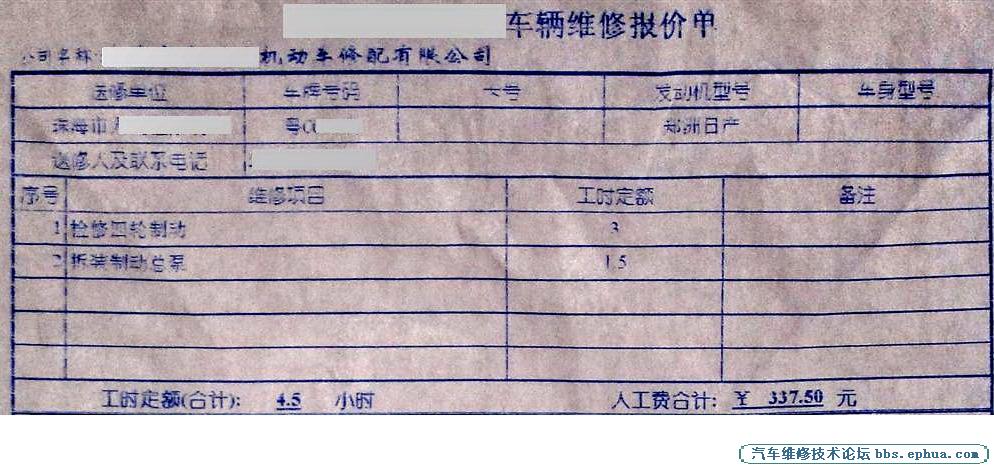 车辆维修报价单
公司名称: 机动车修配有限公司
送修单位 车牌号码 卡号 发动机型号 车身型号
珠海市 粤C 郑洲日产
送修人及联系电话
序号 维修项目 工时定额 备注
1 检修四轮制动 3
2 拆装制动总泵 1.5
工时定额(合计): 4.5 小时 人工费合计: ¥ 337.50 元
汽车维修技术论坛 bbs.ephua.com